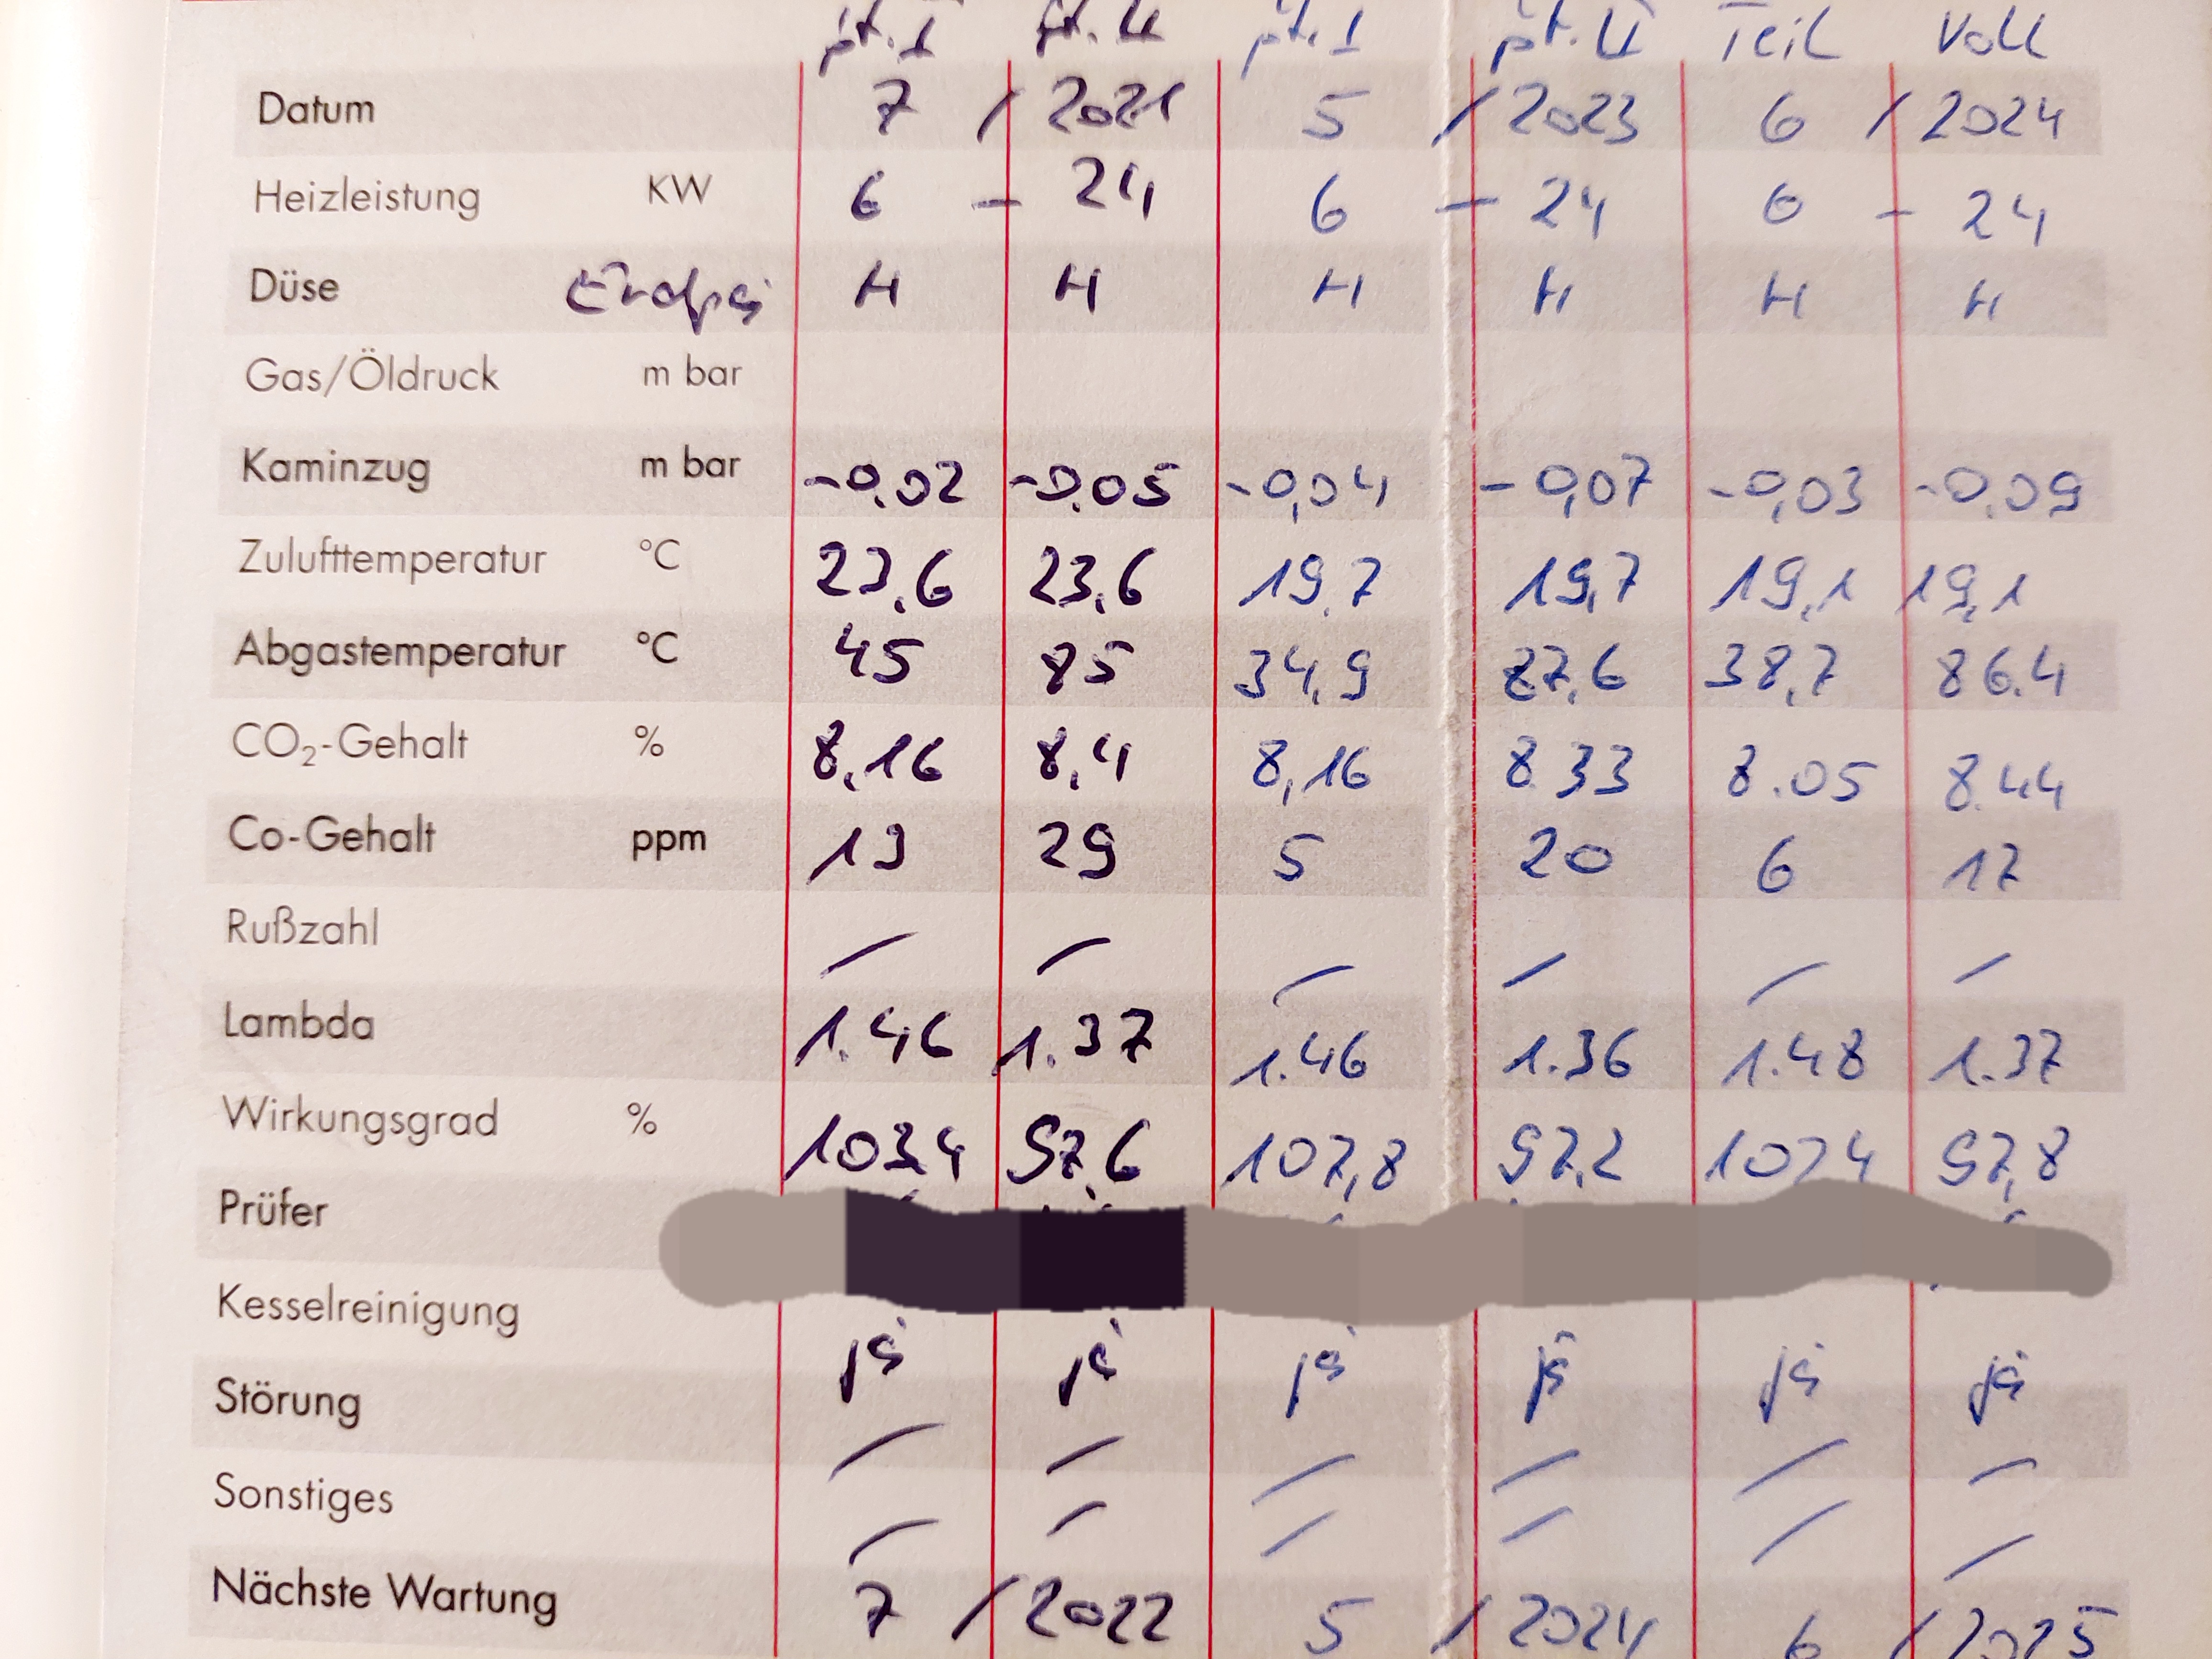 pt. I pt. II pt. I pt. II Teil Voll
Datum 7 / 2021 5 / 2023 6 / 2024
Heizleistung KW 6 - 24 6 - 24 6 - 24
Düse Erdgas H H H H H H
Gas/Öldruck m bar
Kaminzug m bar -0,02 -0,05 -0,04 -0,07 -0,03 -0,09
Zulufttemperatur °C 23,6 23,6 19,7 19,7 19,1 19,1
Abgastemperatur °C 45 85 34,9 87,6 38,7 86.4
CO₂-Gehalt % 8,16 8,4 8,16 8.33 8.05 8.44
Co-Gehalt ppm 13 29 5 20 6 17
Rußzahl / / / / / /
Lambda 1.46 1.37 1.46 1.36 1.48 1.37
Wirkungsgrad % 103,4 97,6 107,8 97,2 107,4 97,8
Prüfer
Kesselreinigung ja ja ja ja ja ja
Störung / / / / / /
Sonstiges / / / / / /
Nächste Wartung 7 / 2022 5 / 2024 6 / 2025